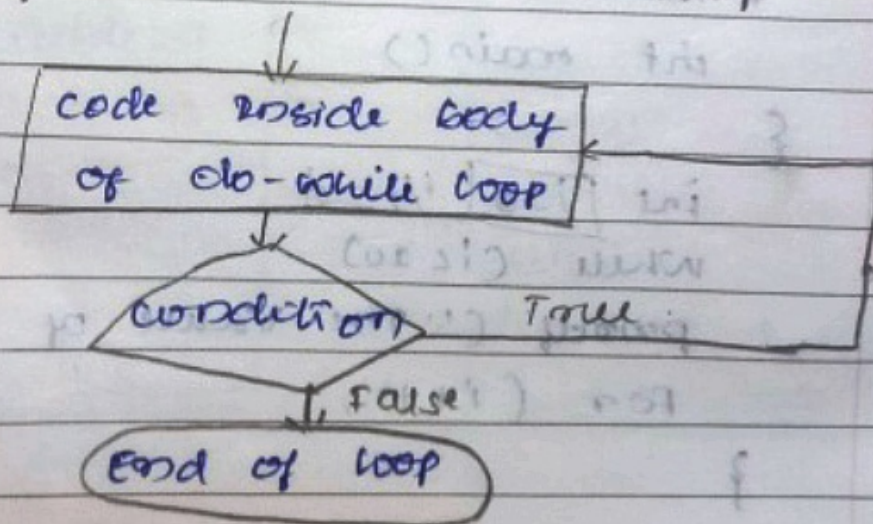 code inside body
of do-while loop
condition
True
False
End of loop